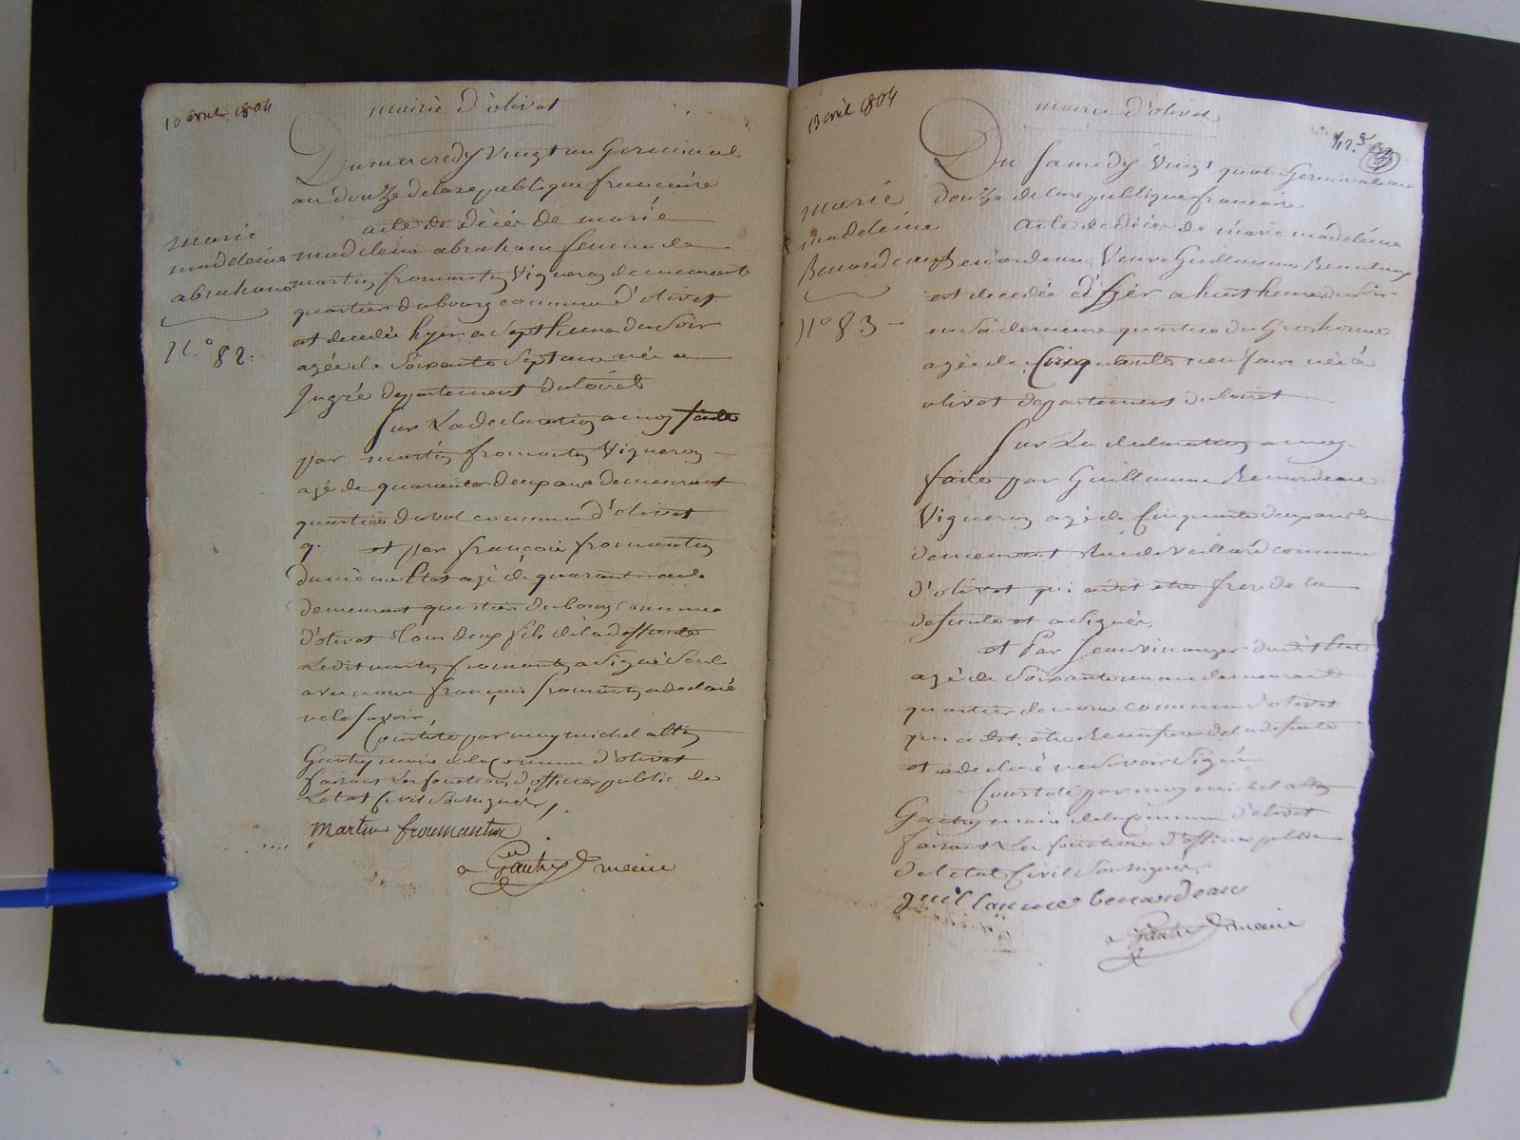 10 avril 1804
mairie d'olivet
Du mercredy Vingt un Germinal
an douze de la republique francaise
acte de décès de marie
marie
madeleine
abraham
N.° 82.
madeleine abraham femme de
martin fromentin Vigneron demeurant
quartier du bourg commune d'olivet
est decedée hyer a sept heures du soir
agée de Soixante Sept ans née a
Ingré departement du loiret
Sur La declaration a moy faite
par martin fromentin Vigneron
agé de quarante deux ans demeurant
quartier du val commune d'olivet
et par françois fromentin
du même Etat agé de quarante
demeurant quartier du bourg commune
d'olivet tous deux fils de la deffunte
Ledit martin fromentin a signé Seul
françois fromentin a declaré
ne le savoir,
Constaté par moy michel altin
Gautry maire de la Commune d'olivet
faisant Les fonctions d'officier public de
Letat Civil Soussigné,
martin fromantin
Gautry maire
13 avril 1804
mairie d'olivet
Du Samedy Vingt quatre Germinal an
douze de la republique francaise
acte de décès de marie madeleine
marie
madeleine
N° 83
Veuve Guillaume
est decedée d'hyer a huit heures du soir
en sa demeure quartier du
agée de Cinquante neuf ans née à
olivet departement du loiret
Sur La declaration a moy
faite par Guillaume Benardeau
Vigneron agé de Cinquante deux ans
demeurant commune
d'olivet qui a dit etre frere de la
defunte et a signé,
et Par Jean du dit Etat
agé de Soixante demeurant
quartier commune d'olivet
qui a dit etre de la defunte
et a declaré ne savoir Signé
Constaté par moy michel altin
Gautry maire de la Commune d'olivet
faisant Les fonctions d'officier public
de Letat Civil Soussigné,
guillaume benardeau
Gautry maire